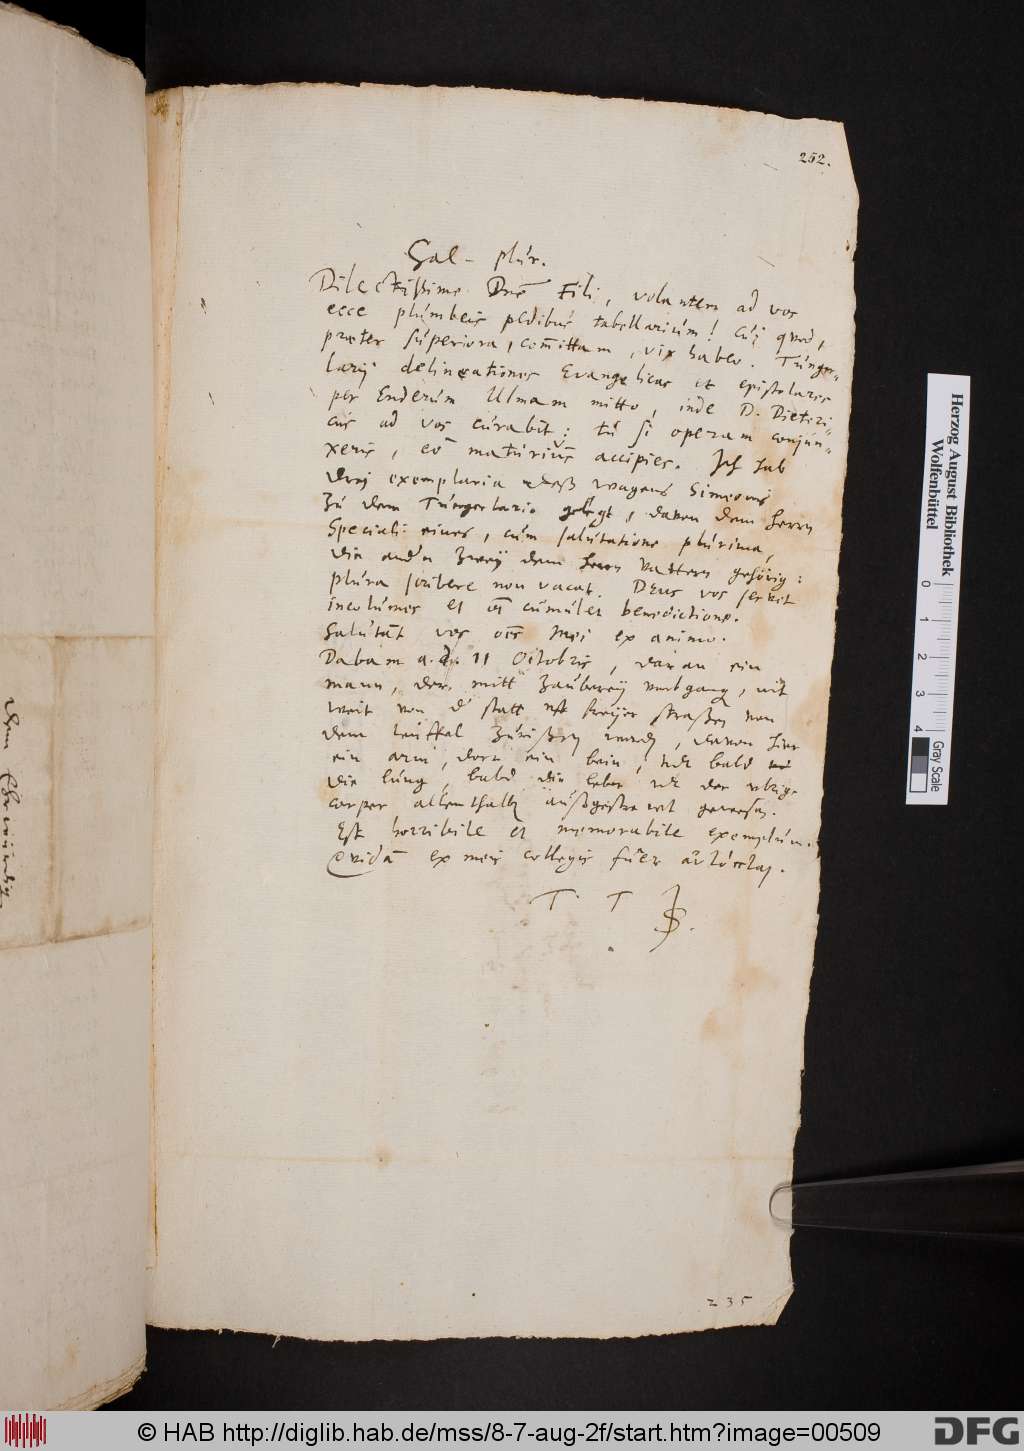 252.
Sal- plúr.
Dilectissime Dne Fili, volantem ad vos
ecce plúmbeis pedibús tabellariúm! cúj quod,
praeter súperiora, comittam, vix habeo. Túnger-
larij delineationes Evangelicas et epistolares
per Enderúm Ulmam mitto, inde D. Dieteri-
cús ad vos cúrabit: tú si operam conjún-
xeris, eo matúriús accipies. Ich hab
drej exemplaria deß wagens Simeonis
zú dem Túngerlario gelegt, davon dem herrn
Speciali eines, cúm salútatione plúrima,
die andn zweÿ dem herrn Vattern gehörig:
plúra scribere non vacat. Deus vos servet
incolúmes et cúmúlet benedictione.
Salútat vos oes Mei ex animo.
Dabam a. d. 11 Octobris, daran ein
mann, der mitt zaúbereÿ umbgang, nit
weit von d statt uff freijer straßen von
dem teúffel zúrißen word, davon hier
ein arm, dort ein bein, bald
die lúng, bald die leber der ubrige
corper allenthalb aúßgestrewt gewesen.
Est horribile et memorabile exemplúm.
Qvidā ex meis collegis fúer
T. T. JS.
235
Herzog August Bibliothek
Wolfenbüttel
0 1 2 3 4
Gray Scale
© HAB http://diglib.hab.de/mss/8-7-aug-2f/start.htm?image=00509
DFG